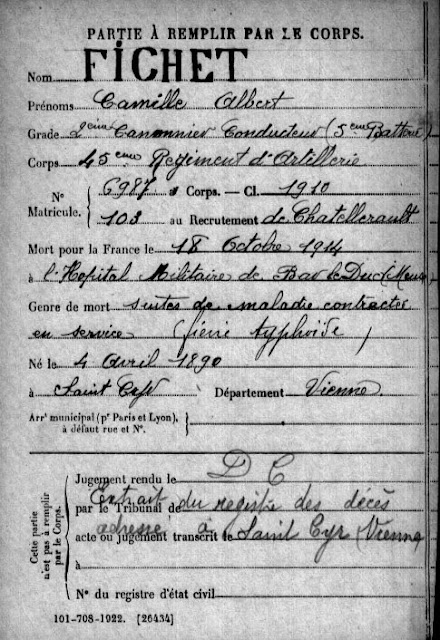 PARTIE À REMPLIR PAR LE CORPS.
Nom FICHET
Prénoms Camille Albert
Grade 2eme Canonnier Conducteur (5eme Batterie)
Corps 45eme Régiment d'Artillerie
N° Matricule. { 6987 au Corps. — Cl. 1910
103 au Recrutement de Chatellerault
Mort pour la France le 18 Octobre 1914
à l'Hopital Militaire de Bar le Duc (Meuse)
Genre de mort suites de maladie contractée
en service (fièvre typhoïde)
Né le 4 Avril 1890
à Saint Cyr Département Vienne
Arr<sup>t</sup> municipal (p<sup>r</sup> Paris et Lyon), à défaut rue et N°. {
Cette partie n'est pas à remplir par le Corps. {
Jugement rendu le D C
par le Tribunal de Extrait du registre des décès
acte ou jugement transcrit le adressé à Saint Cyr (Vienne)
à
N° du registre d'état civil
101-708-1922. [26434]